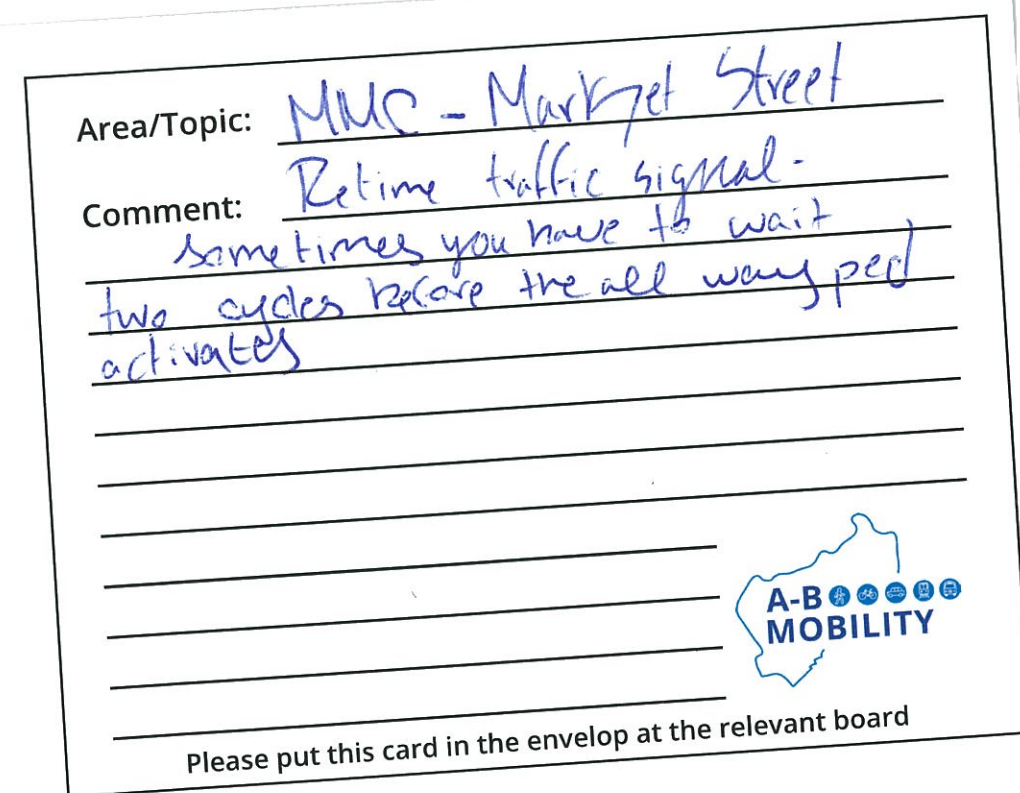 Area/Topic: MMC - Market Street
Comment: Retime traffic signal -
sometimes you have to wait
two cycles before the all way ped
activates
A-B
MOBILITY
Please put this card in the envelop at the relevant board